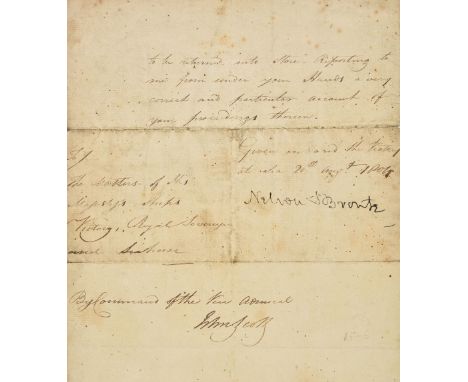 to be return'd into Store Reporting to
me from under your Hands a very
correct and particular account of
your proceedings therein
Given on board the Victory
at sea 20th Augt
Nelson & Bronte
To
The Masters of His
Majesty's Ships
Victory, Royal Sovereign
and
By Command of the Vice Admiral
John Scott